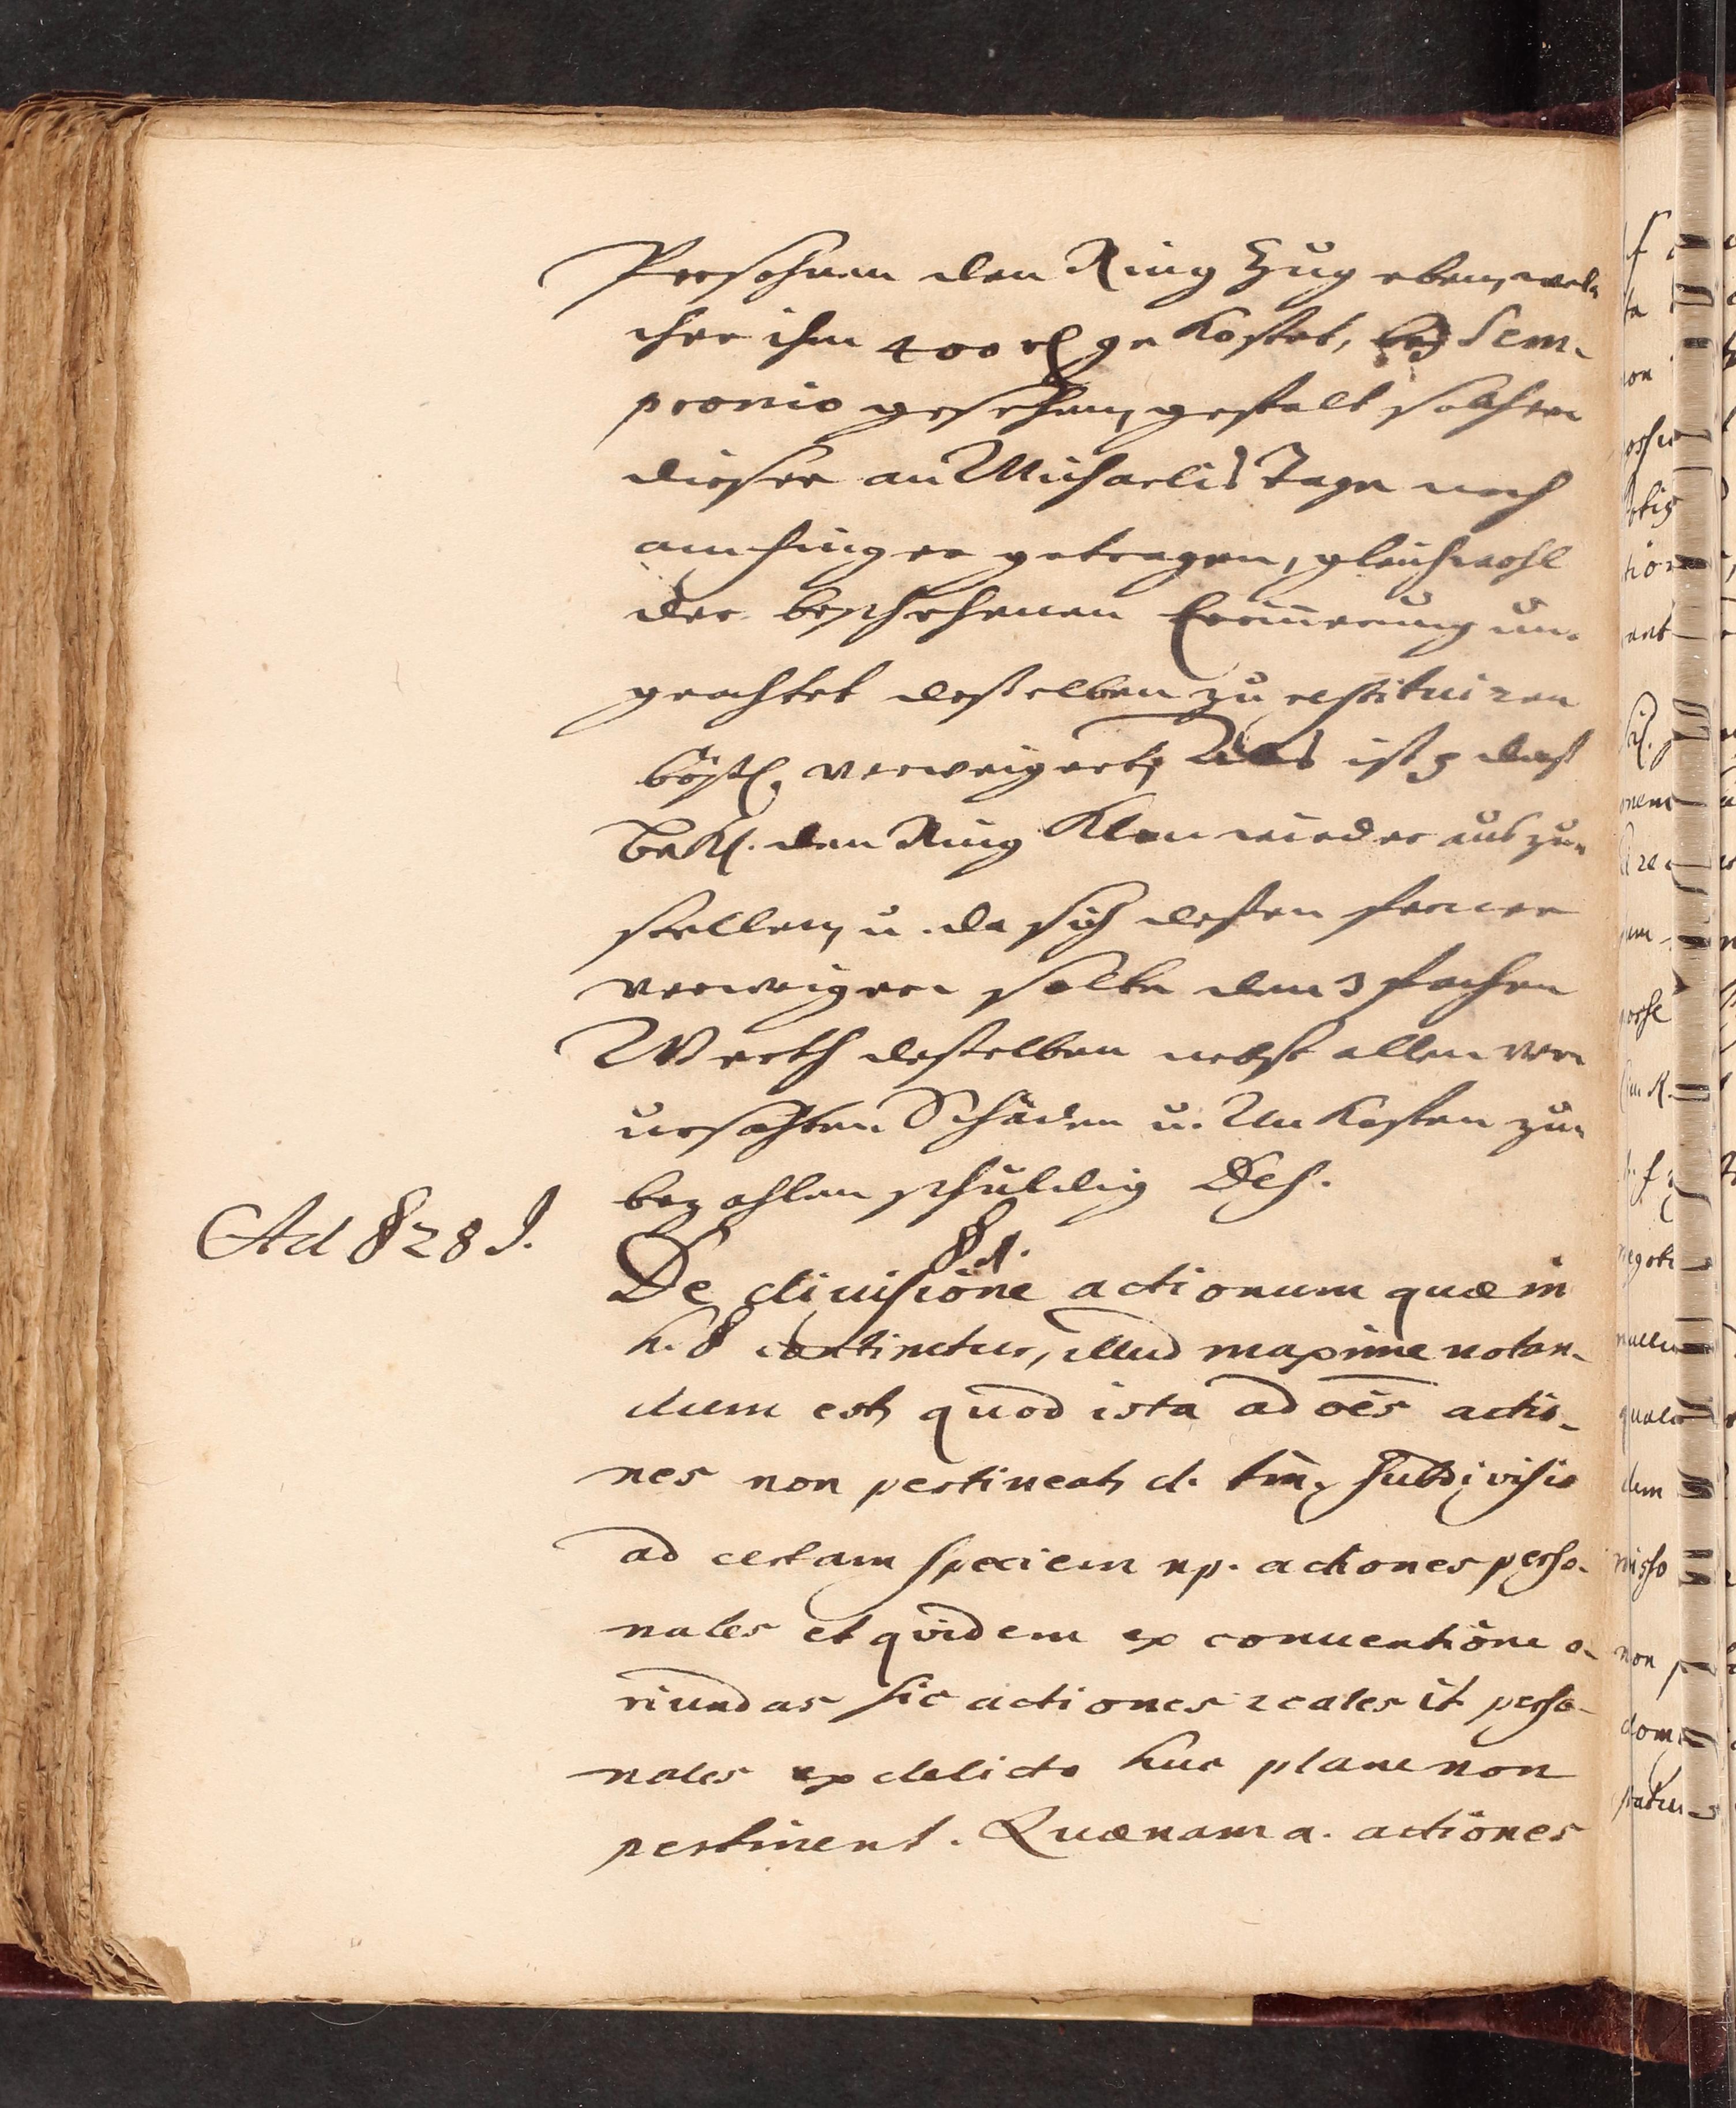 Persohnen den Ring Zug eben, wel-
cher ihm 400 rl ge kostet, bey Sem-
pronio gesehen, gestalt solchen
dieser an Michaelis Tage noch
am finger getragen, gleichwohl
der beschehenen Erinnerung un-
geachtet deßelben zu restituiren
verweigert, ist daß
Bekl. den Ring Klern wieder auszu-
stellen, u. da sich deßen ferner
verweigern solte den 3 fachen
Werth deßelben nebst allen ver
ursachten Schäden u. Un Kosten zu-
bezahlen schuldig
Ad § 28 J.
§ 1.
De divisione actionum quæ in
h. § continetur, illud maxime notan-
dum est, quod ista ad oēs actio-
nes non pertineat, d. tm. subdivisio
ad certam speciem np. actiones perso-
nales et quidem ex conventione o-
riundas sic actiones reales it perso-
nales ex delicto huc plane non
pertinent. Quænam a. actiones